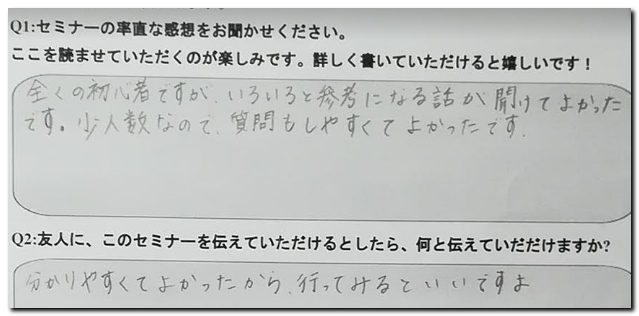 Q1:セミナーの率直な感想をお聞かせください。
ここを読ませていただくのが楽しみです。詳しく書いていただけると嬉しいです！
全くの初心者ですが、いろいろと参考になる話が聞けてよかった
です。少人数なので、質問もしやすくてよかったです.
Q2:友人に、このセミナーを伝えていただけるとしたら、何と伝えていだだけますか?
分かりやすくてよかったから、行ってみるといいですよ